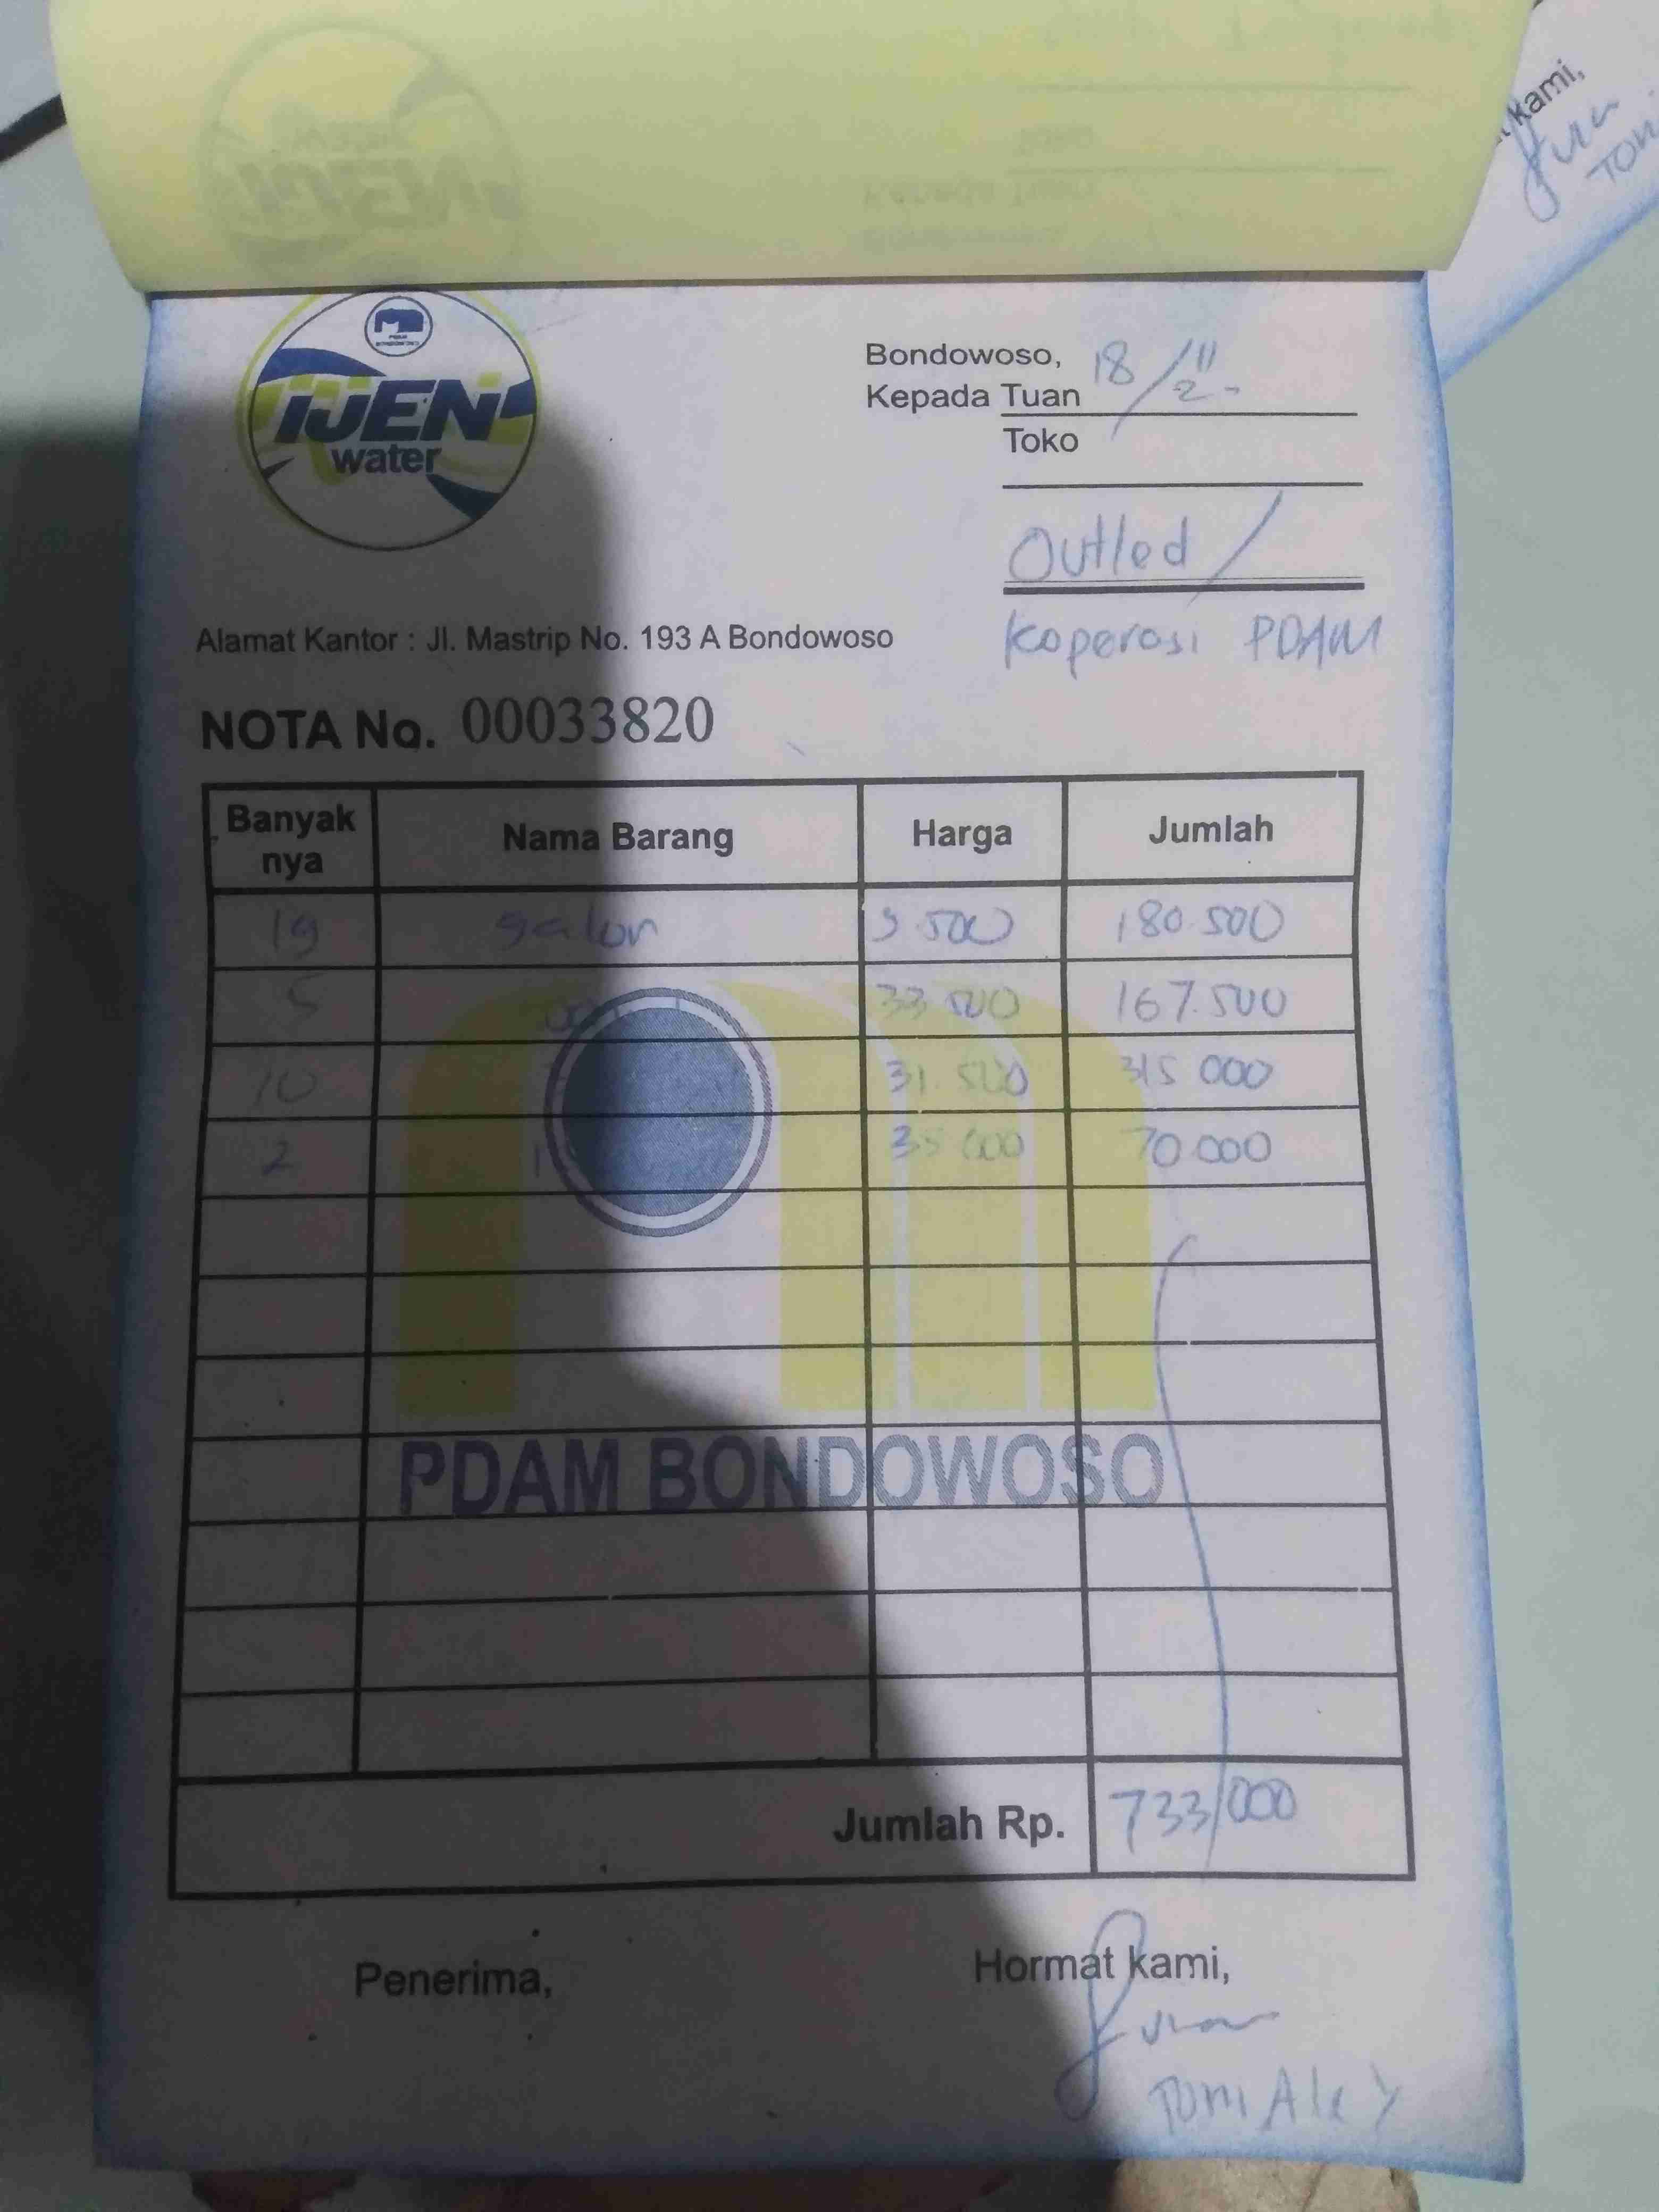 kami,
IJEN
water
Bondowoso, 18/11
Kepada Tuan
Toko
Outled /
Koperasi PDAM
Alamat Kantor : Jl. Mastrip No. 193 A Bondowoso
NOTA No. 00033820
Banyak nya Nama Barang Harga Jumlah
19 galon 9.500 180.500
5 33.500 167.500
10 31.500 315.000
2 35.000 70.000
PDAM BONDOWOSO
Jumlah Rp. 733/000
Penerima, Hormat kami,